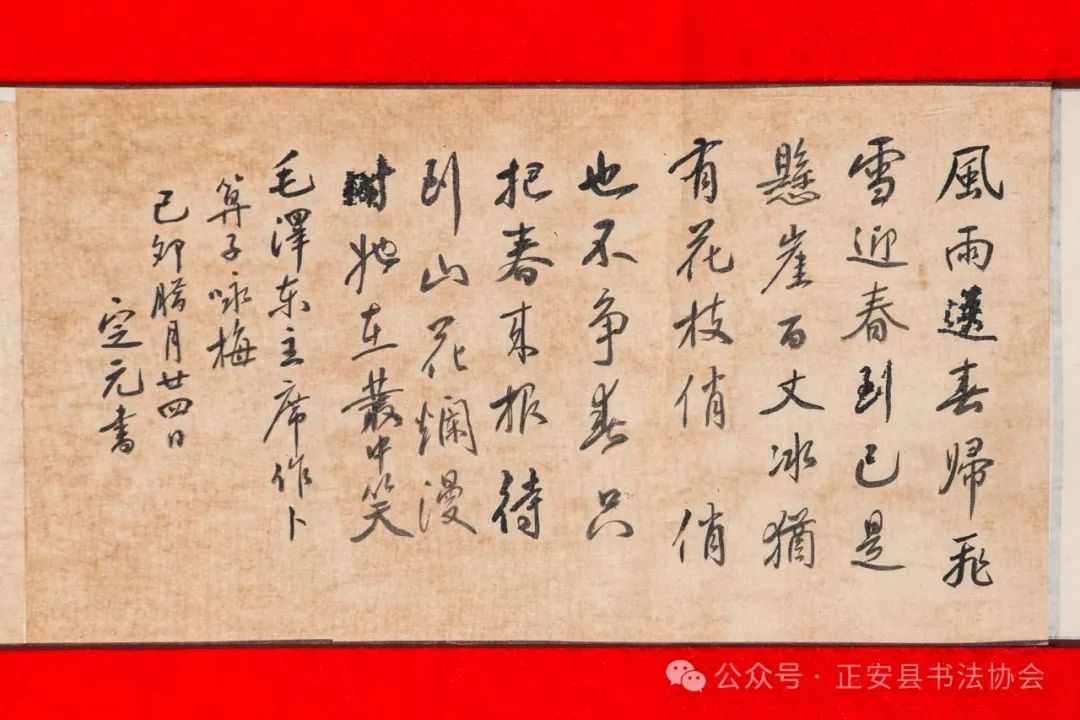 風雨送春歸飛
雪迎春到已是
懸崖百丈冰猶
有花枝俏俏
也不争春只
把春来报待
到山花爛漫
時她在叢中笑
毛澤东主席作卜
算子咏梅
己卯腊月廿四日
定元书
公众号·正安县书法协会